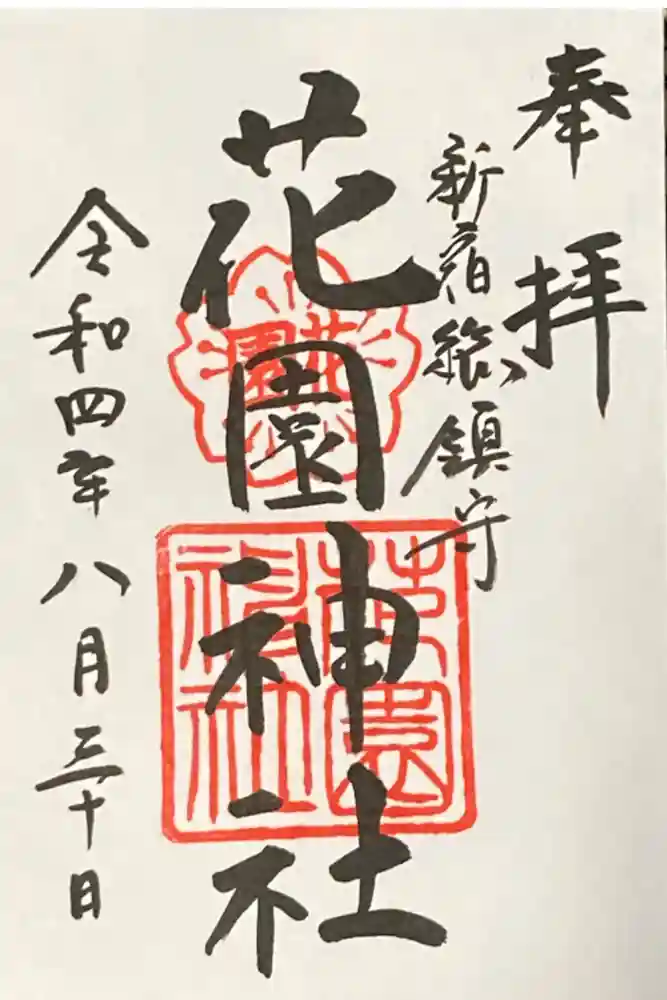 奉拝
新宿総鎮守
花園神社
令和四年八月三十日
花園
花園神社